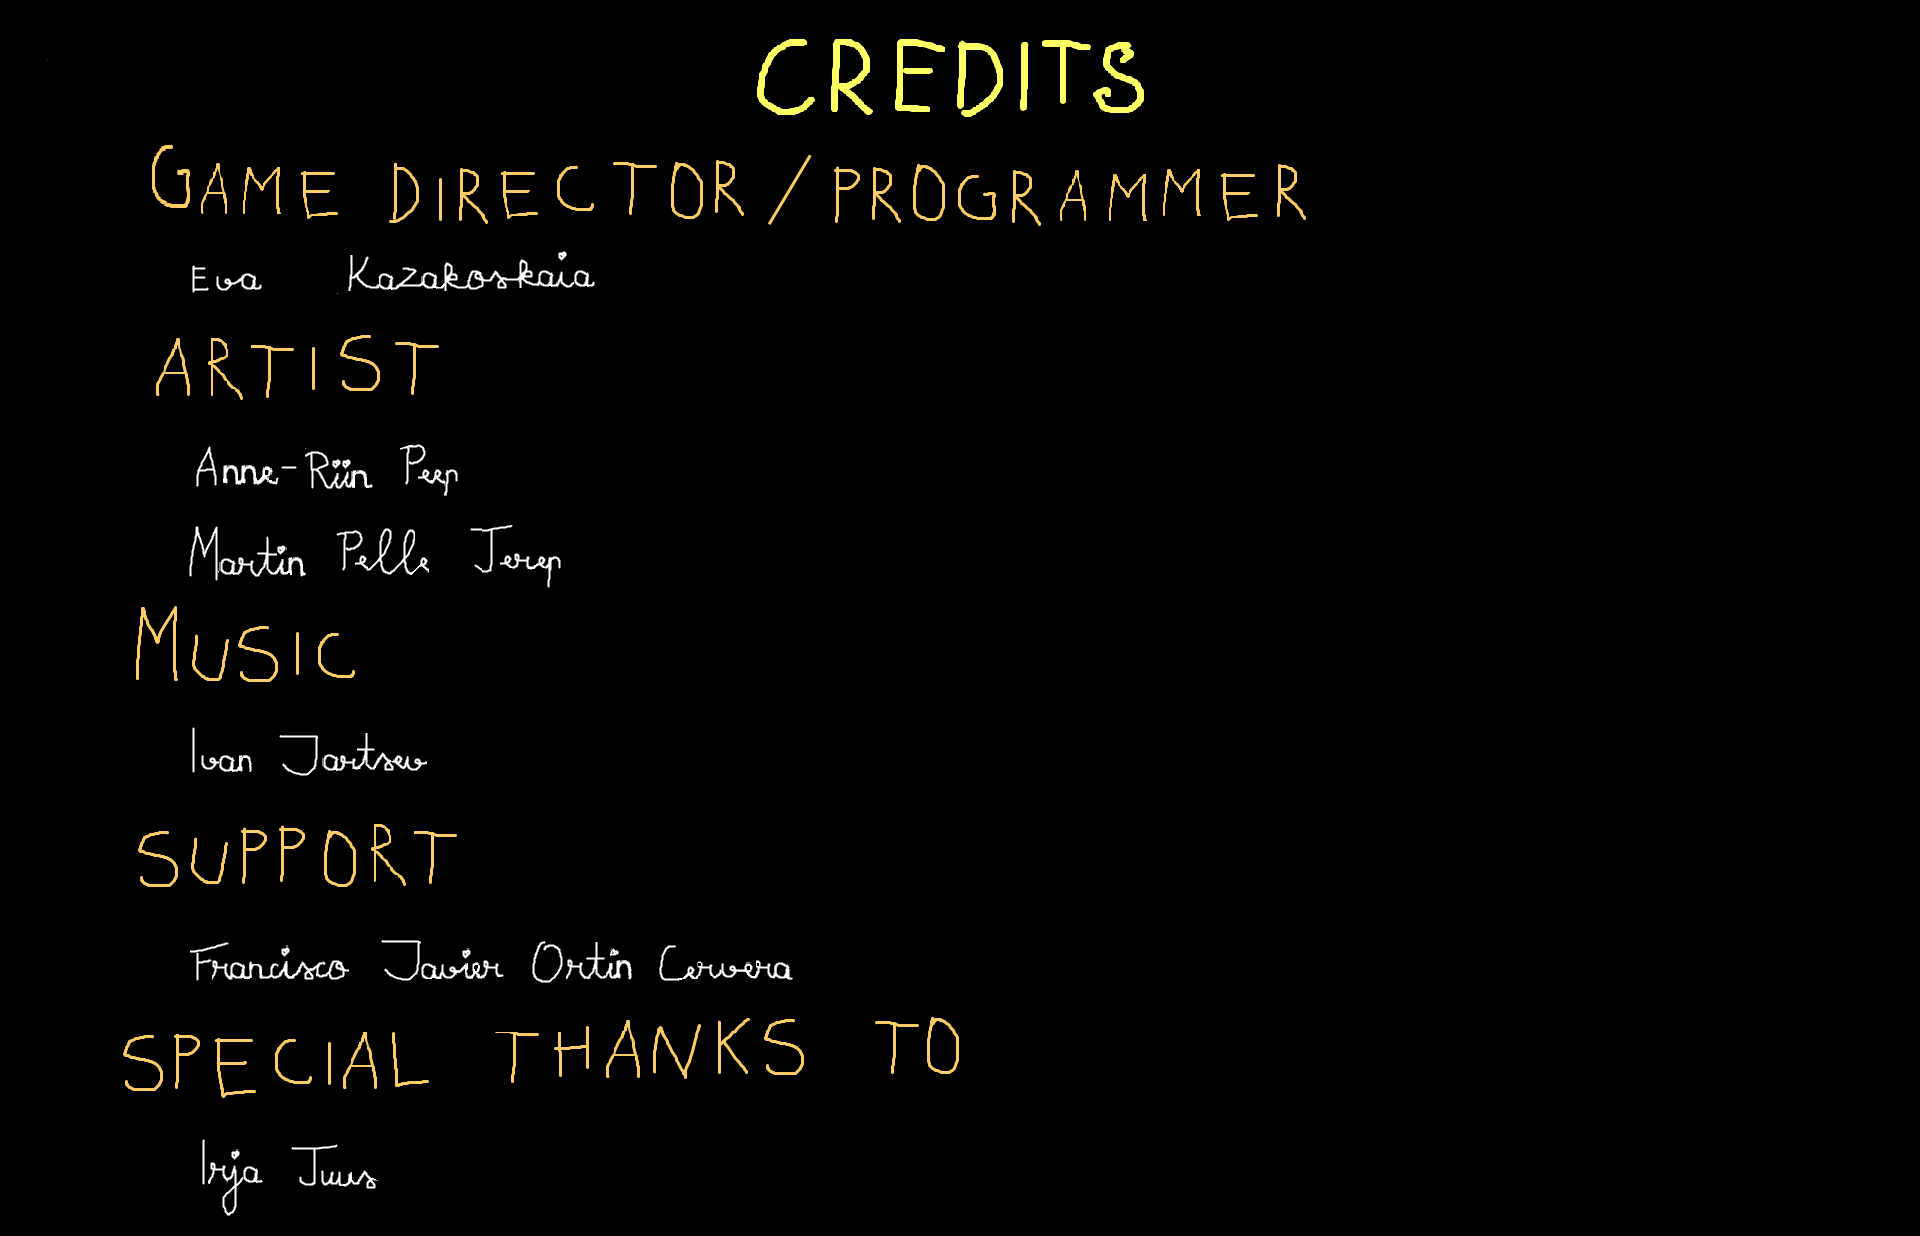 CREDITS
GAME DIRECTOR/PROGRAMMER
Eva Kazakoskaia
ARTIST
Anne-Riin Peep
Martin Pelle Jerep
MUSIC
Ivan Jartsev
SUPPORT
Francisco Javier Ortin Cervera
SPECIAL THANKS TO
Irja Juus